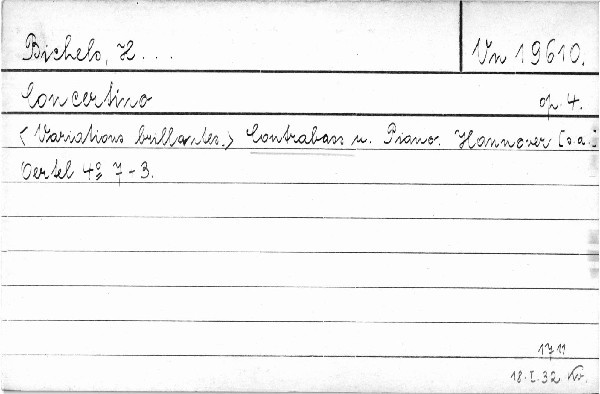 Bichels, H... Vn 19610.
Concertino op. 4.
<Variations brillantes.> Contrabass u. Piano. Hannover [s.a.]
Oertel 4º 7-3.
1711
18.I.32